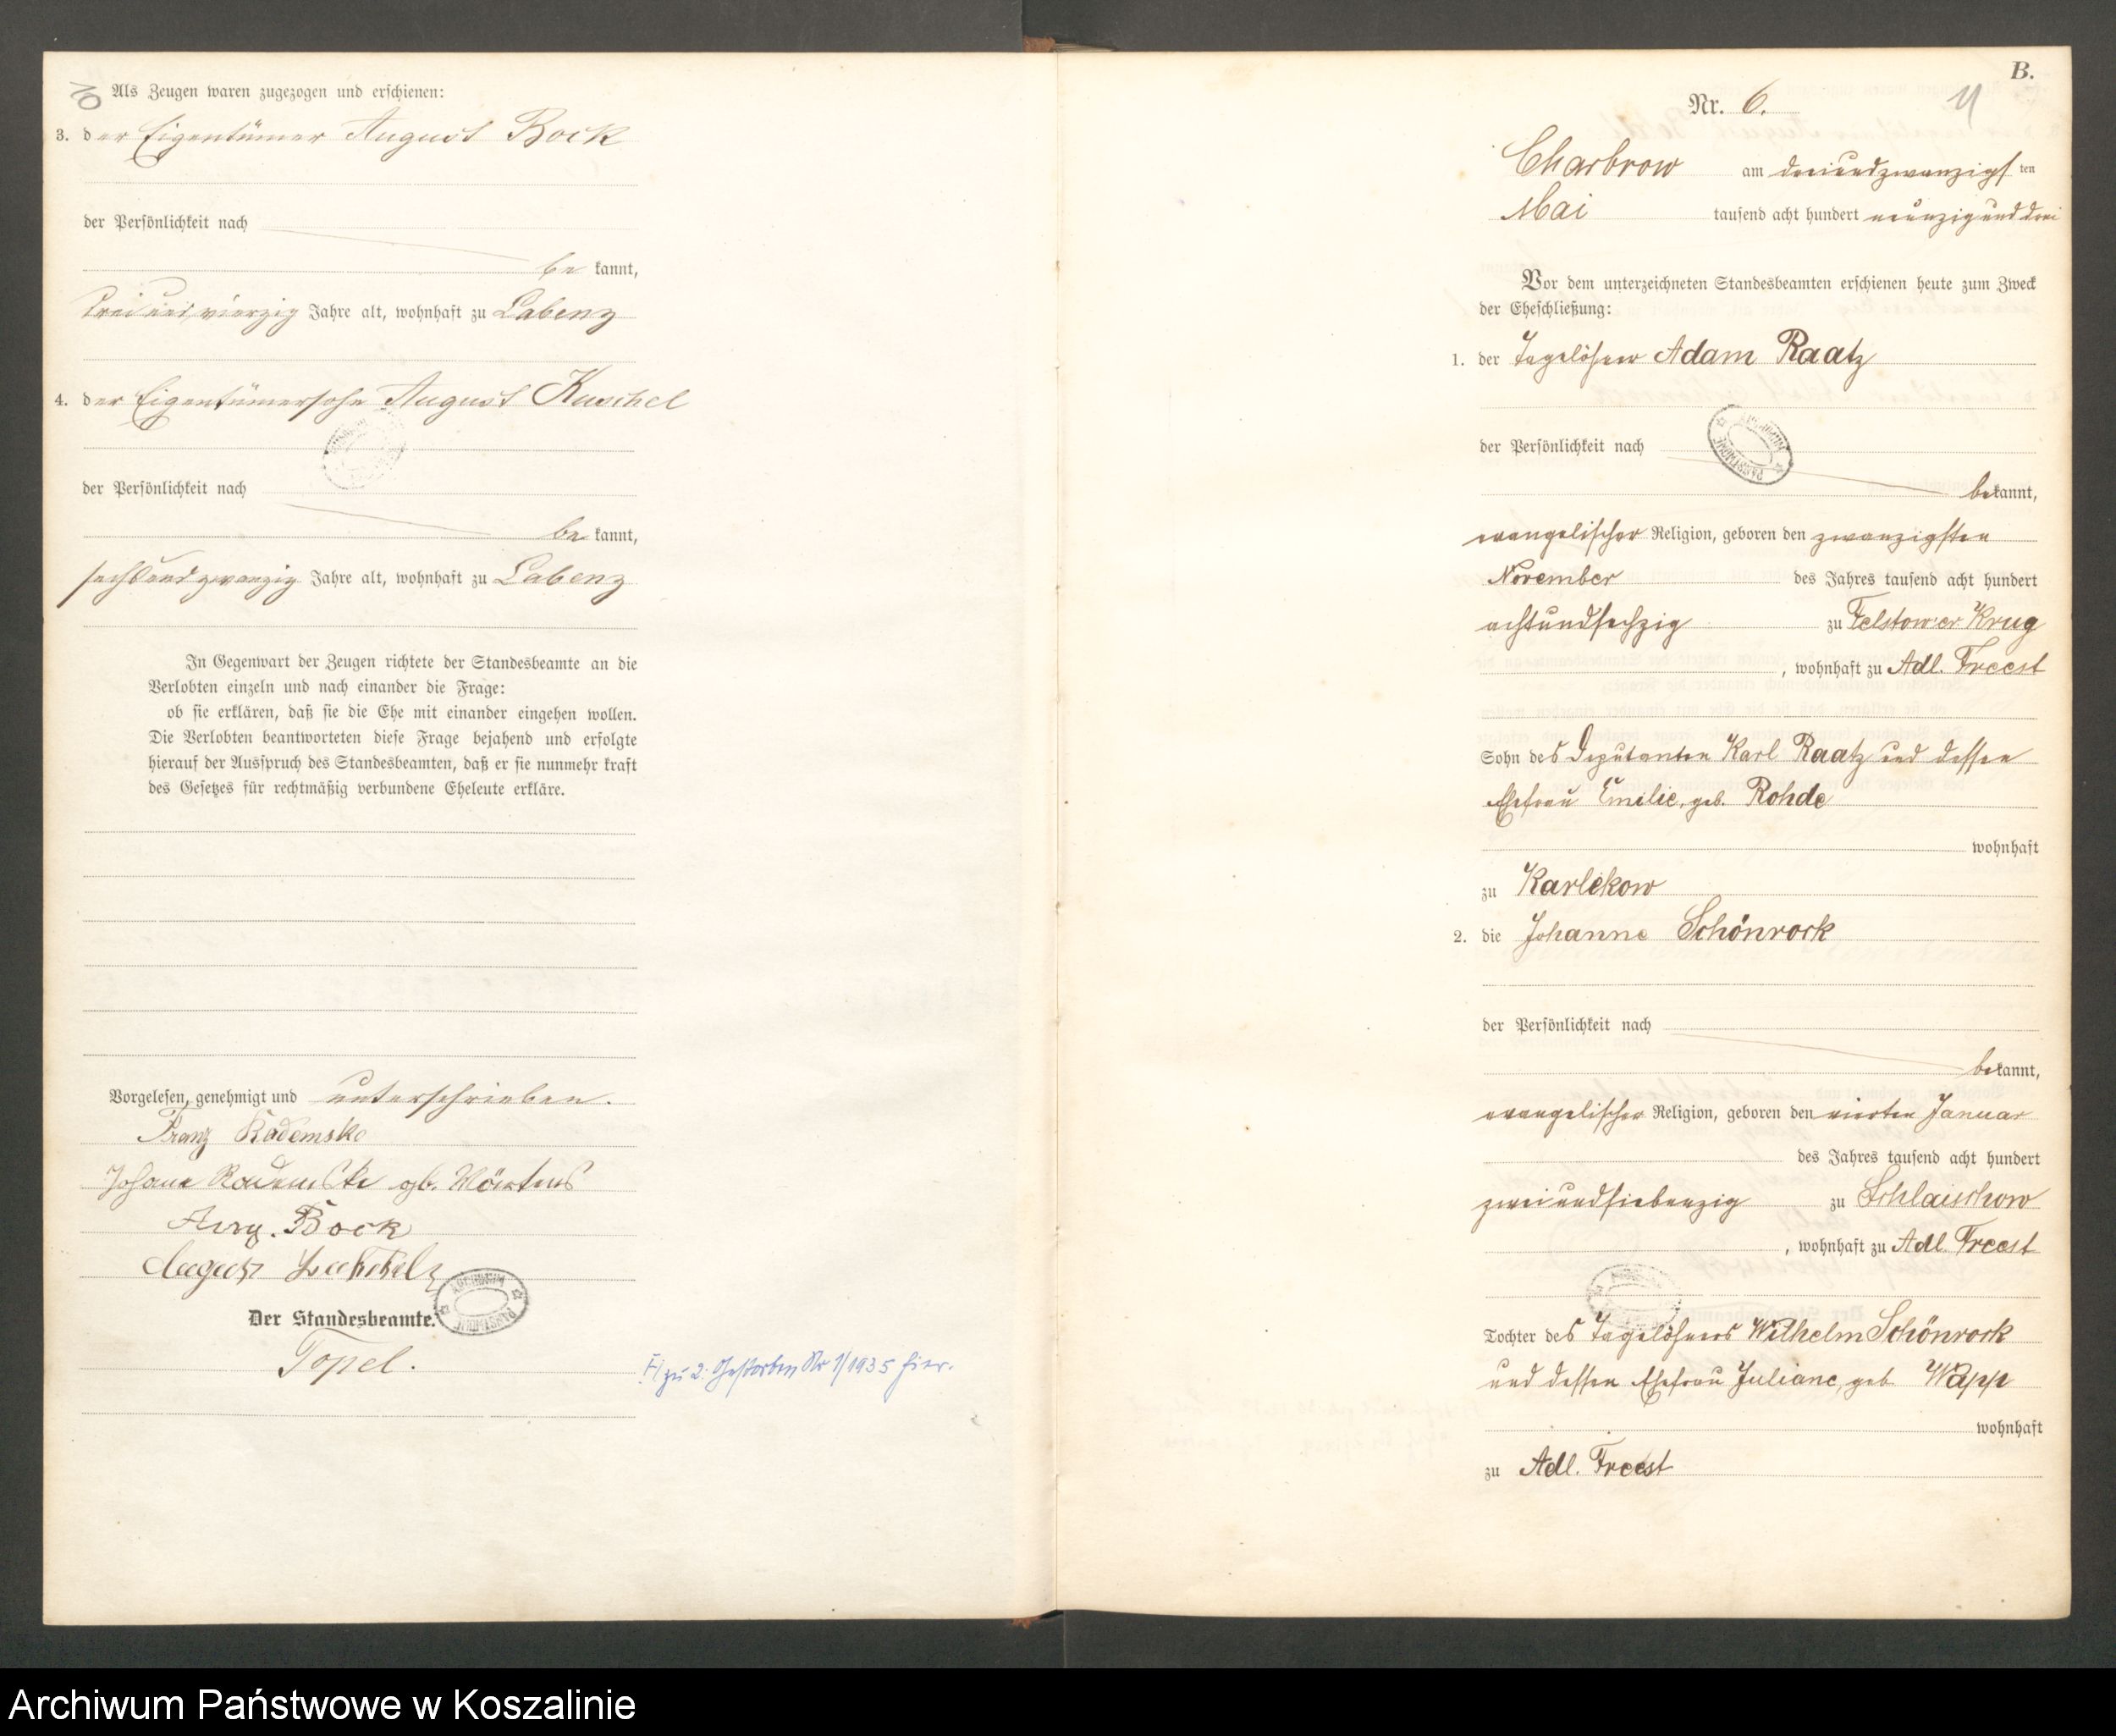 10
Als Zeugen waren zugezogen und erschienen:
3. der Eigentümer August Bock
der Persönlichkeit nach
be kannt,
dreiundvierzig Jahre alt, wohnhaft zu Labenz
4. der Eigentümersohn August Kuschel
der Persönlichkeit nach
be kannt,
sechsundzwanzig Jahre alt, wohnhaft zu Labenz
In Gegenwart der Zeugen richtete der Standesbeamte an die
Verlobten einzeln und nach einander die Frage:
ob sie erklären, daß sie die Ehe mit einander eingehen wollen.
Die Verlobten beantworteten diese Frage bejahend und erfolgte
hierauf der Ausspruch des Standesbeamten, daß er sie nunmehr kraft
des Gesetzes für rechtmäßig verbundene Eheleute erkläre.
Vorgelesen, genehmigt und unterschrieben.
Franz Rademske
Johane Rademske gb. Mörtens
Aug. Bock
August
Der Standesbeamte.
Topel.
zu 2: Gestorben Nr 1/1935 hier.
B.
Nr. 6.
11
Charbrow am dreiundzwanzigsten
Mai tausend acht hundert neunzig und drei
Vor dem unterzeichneten Standesbeamten erschienen heute zum Zweck
der Eheschließung:
1. der Tagelöhner Adam Raatz
der Persönlichkeit nach
bekannt,
evangelischer Religion, geboren den zwanzigsten
November des Jahres tausend acht hundert
achtundsechzig zu Felstower Krug
, wohnhaft zu Adl. Freest
Sohn des Deputanten Karl Raatz und dessen
Ehefrau Emilie, geb. Rohde
wohnhaft
zu Karlekow
2. die Johanne Schönrock
der Persönlichkeit nach
bekannt,
evangelischer Religion, geboren den vierten Januar
des Jahres tausend acht hundert
zweiundsiebenzig zu Schlaischow
, wohnhaft zu Adl. Freest
Tochter des Tagelöhners Wilhelm Schönrock
und dessen Ehefrau Juliane, geb. Wapp
wohnhaft
zu Adl. Freest
Archiwum Państwowe w Koszalinie